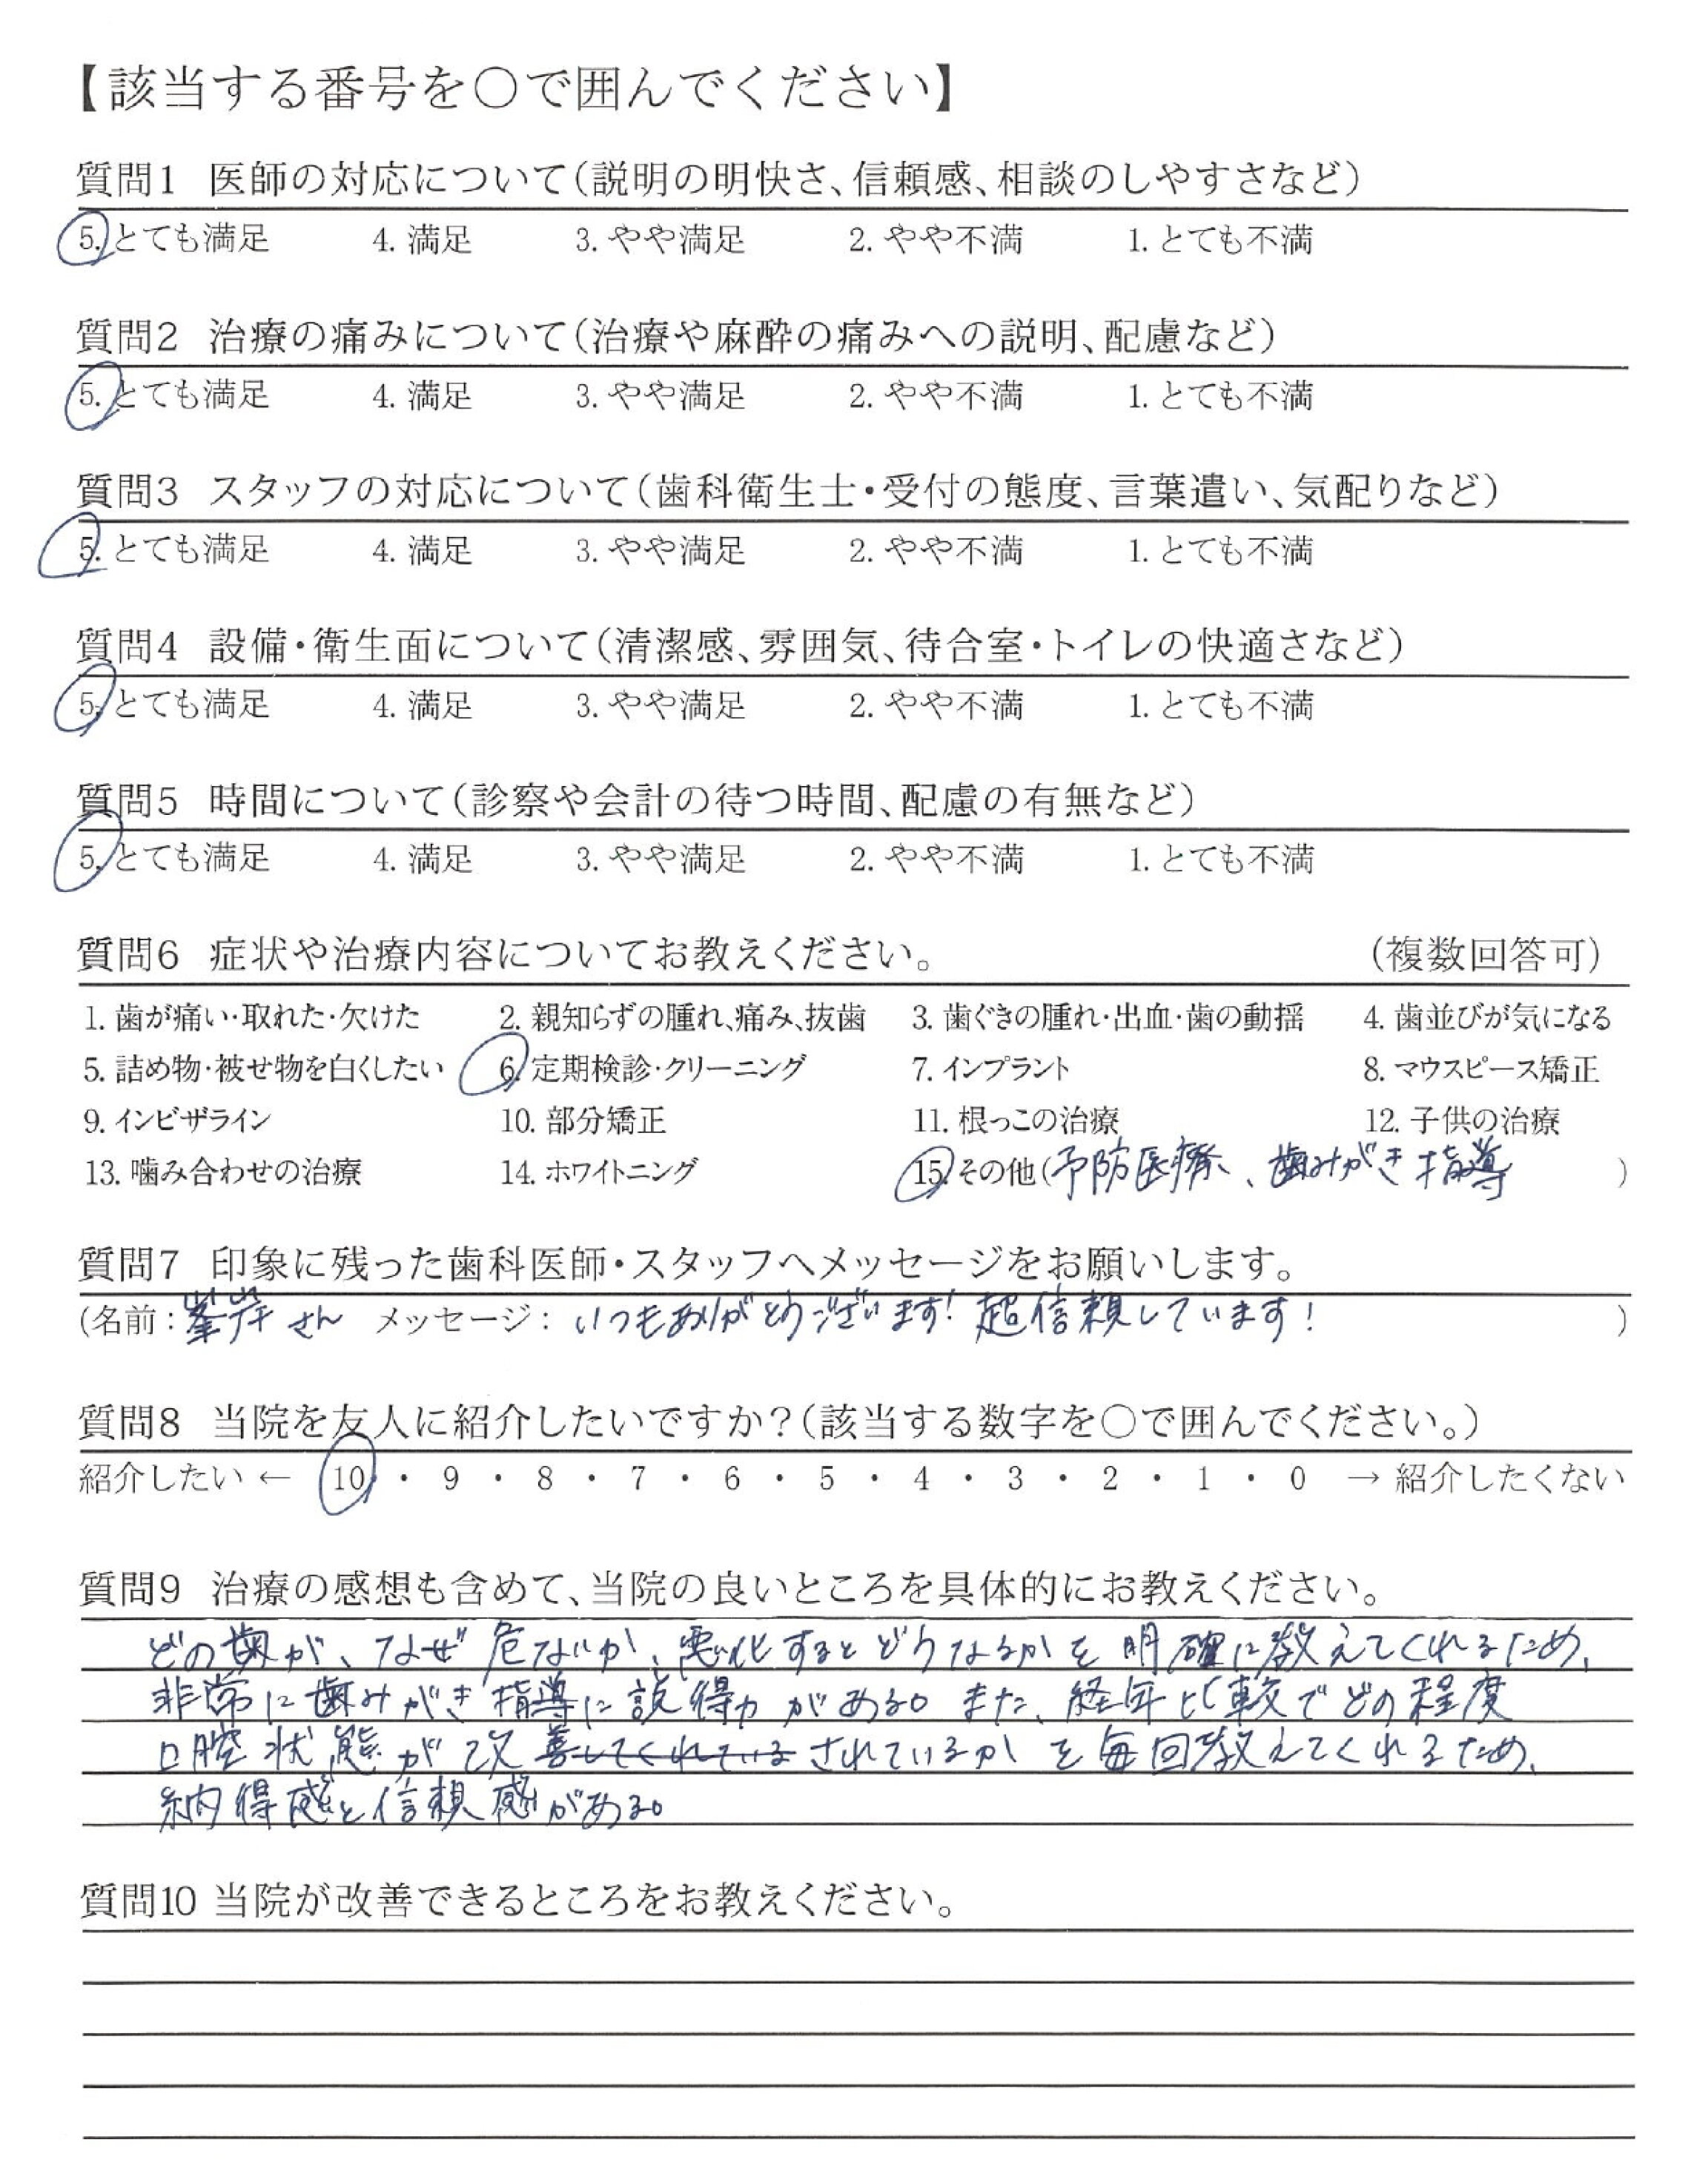 【該当する番号を〇で囲んでください】
質問1 医師の対応について(説明の明快さ、信頼感、相談のしやすさなど)
5. とても満足 4. 満足 3. やや満足 2. やや不満 1. とても不満
質問2 治療の痛みについて(治療や麻酔の痛みへの説明、配慮など)
5. とても満足 4. 満足 3. やや満足 2. やや不満 1. とても不満
質問3 スタッフの対応について(歯科衛生士・受付の態度、言葉遣い、気配りなど)
5. とても満足 4. 満足 3. やや満足 2. やや不満 1. とても不満
質問4 設備・衛生面について(清潔感、雰囲気、待合室・トイレの快適さなど)
5. とても満足 4. 満足 3. やや満足 2. やや不満 1. とても不満
質問5 時間について(診察や会計の待つ時間、配慮の有無など)
5. とても満足 4. 満足 3. やや満足 2. やや不満 1. とても不満
質問6 症状や治療内容についてお教えください。 (複数回答可)
1. 歯が痛い・取れた・欠けた 2. 親知らずの腫れ、痛み、抜歯 3. 歯ぐきの腫れ・出血・歯の動揺 4. 歯並びが気になる
5. 詰め物・被せ物を白くしたい 6. 定期検診・クリーニング 7. インプラント 8. マウスピース矯正
9. インビザライン 10. 部分矯正 11. 根っこの治療 12. 子供の治療
13. 噛み合わせの治療 14. ホワイトニング 15. その他(予防医療、歯みがき指導)
質問7 印象に残った歯科医師・スタッフへメッセージをお願いします。
(名前:峯岸さん メッセージ:いつもありがとうございます!超信頼しています!)
質問8 当院を友人に紹介したいですか?(該当する数字を〇で囲んでください。)
紹介したい ← 10 ・ 9 ・ 8 ・ 7 ・ 6 ・ 5 ・ 4 ・ 3 ・ 2 ・ 1 ・ 0 → 紹介したくない
質問9 治療の感想も含めて、当院の良いところを具体的にお教えください。
どの歯が、なぜ危ないか、悪化するとどうなるかを明確に教えてくれるため、
非常に歯みがき指導に説得力がある。また、経年比較でどの程度
口腔状態が改善してくれているされているかを毎回教えてくれるため、
納得感と信頼感がある。
質問10 当院が改善できるところをお教えください。